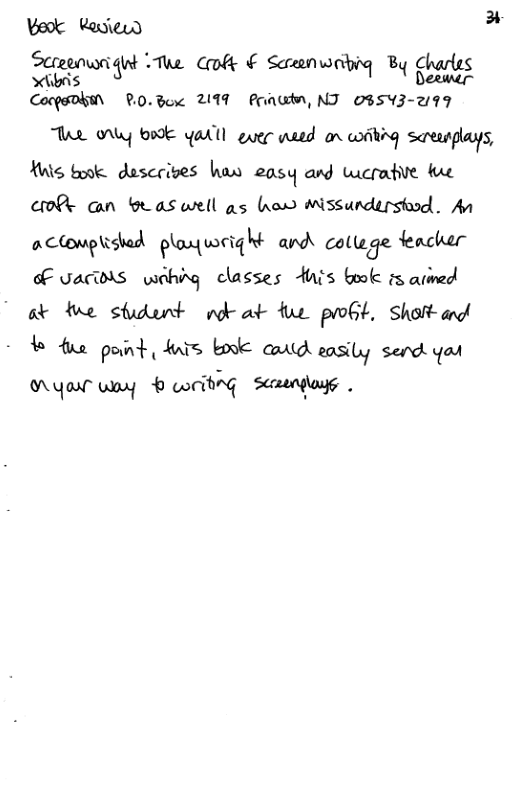 31
Book Review
Screenwright: The Craft of Screenwriting By Charles Deemer
Xlibris
Corporation P.O. Box 2199 Princeton, NJ 08543-2199
The only book you'll ever need on writing screenplays,
this book describes how easy and lucrative the
craft can be as well as how missunderstood. An
accomplished playwright and college teacher
of various writing classes this book is aimed
at the student not at the profit. Short and
to the point, this book could easily send you
on your way to writing screenplays.